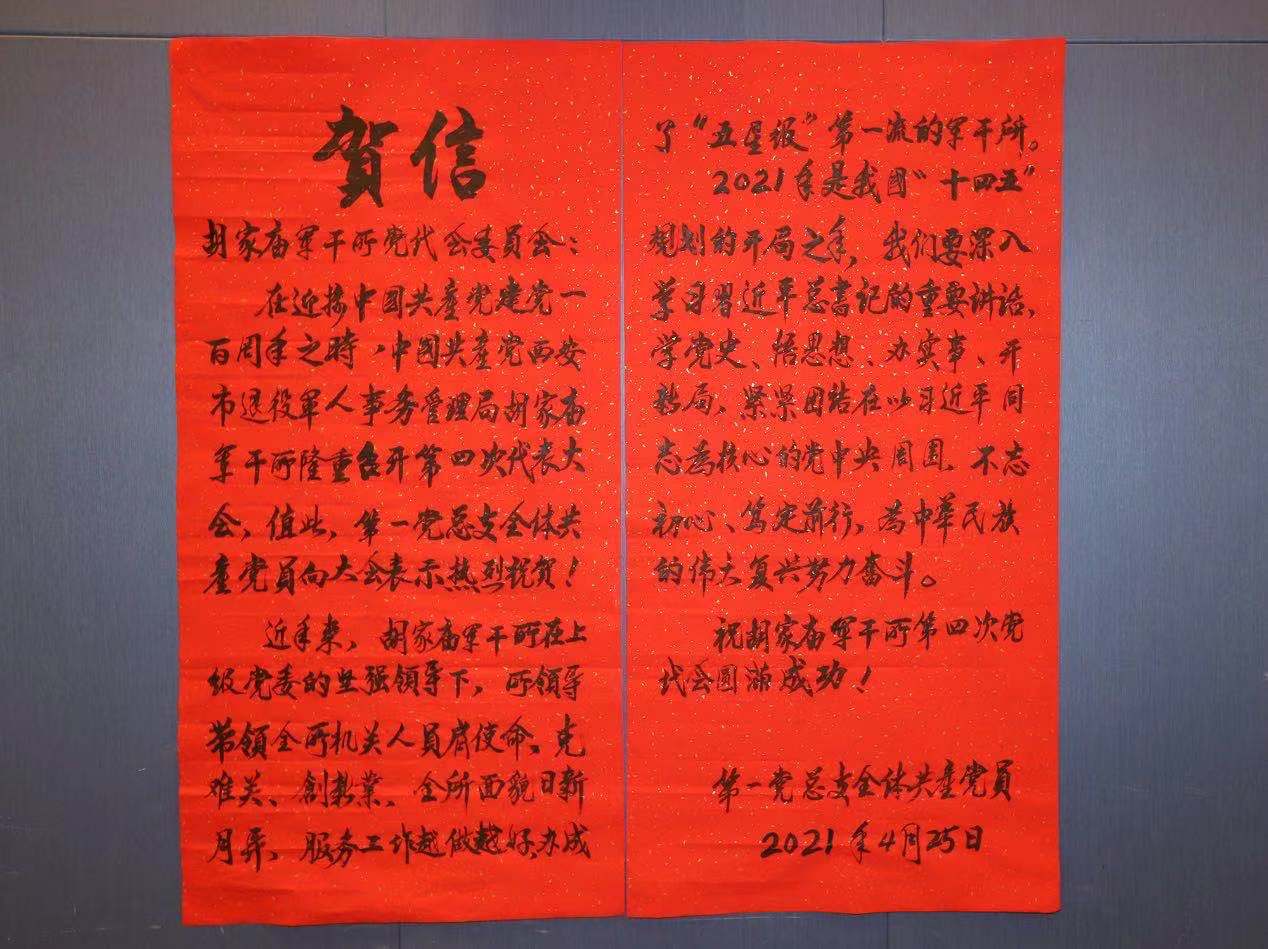 賀信
胡家庙军干所党代会委員会：
在近接中國共產党建党一
百周年之時，中國共產党西安
市退役军人事务管理局胡家庙
军干所隆重召开第四次代表大
会，值此，第一党总支全体共
産党員向大会表示热烈祝贺！
近年来，胡家庙军干所在上
级党委的坚强领导下，所领导
带領全所机关人員肩使命，克
难关、創新業、全所面貌日新
月异、服务工作越做越好，办成
了“五星级”第一流的军干所。
2021年是我國“十四五”
规划的开局之年，我们要深入
学习習近平总書记的重要讲话，
学党史、悟思想、办实事、开
新局，紧紧团结在以习近平同
志为核心的党中央周围，不忘
初心、笃定前行，为中華民族
的伟大复兴努力奋斗。
祝胡家庙军干所第四次党
代会圆满成功！
第一党总支全体共產党員
2021年4月25日